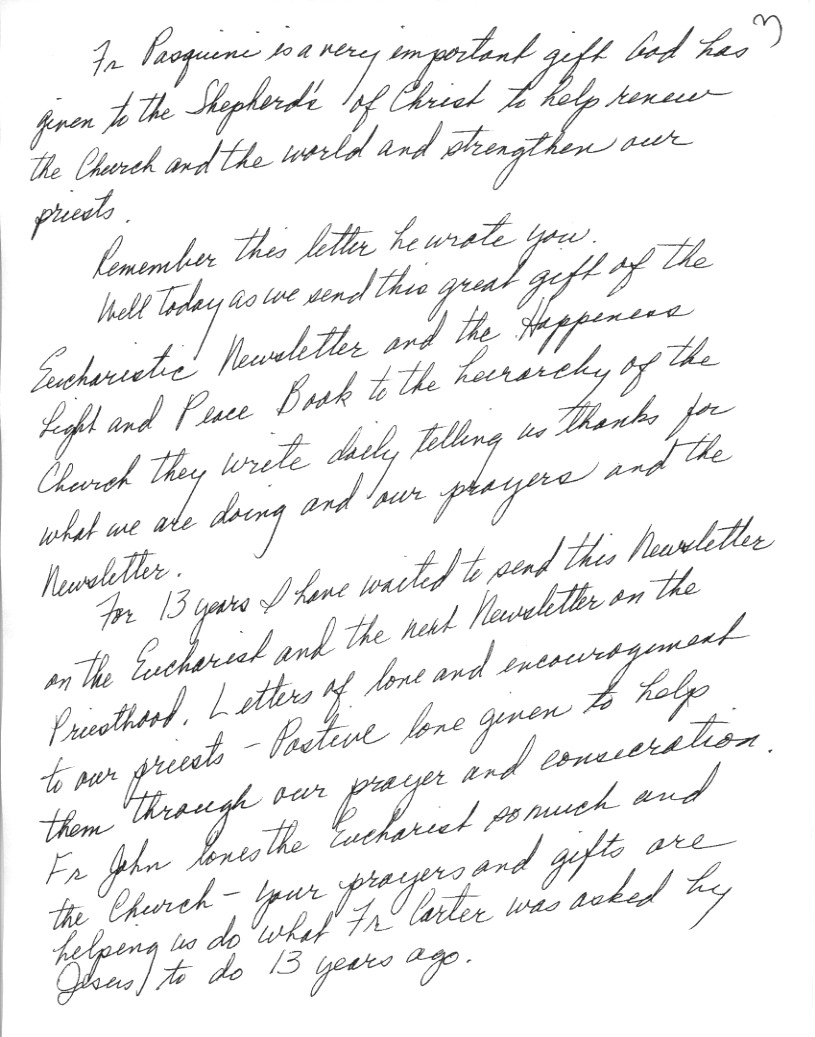 3
Fr Pasquini is a very important gift God has
given to the Shepherd's of Christ to help renew
the Church and the world and strengthen our
priests.
Remember this letter he wrote you.
Well today as we send this great gift of the
Eucharistic Newsletter and the Happeness
Light and Peace Book to the heirarchy of the
Church they write daily telling us thanks for
what we are doing and our prayers and the
Newsletter.
For 13 years I have waited to send this Newsletter
on the Eucharist and the next Newsletter on the
Priesthood. Letters of love and encouragement
to our priests - Postive love given to help
them through our prayer and consecration.
Fr John loves the Eucharist so much and
the Church - your prayers and gifts are
helping us do what Fr Carter was asked by
Jesus to do 13 years ago.